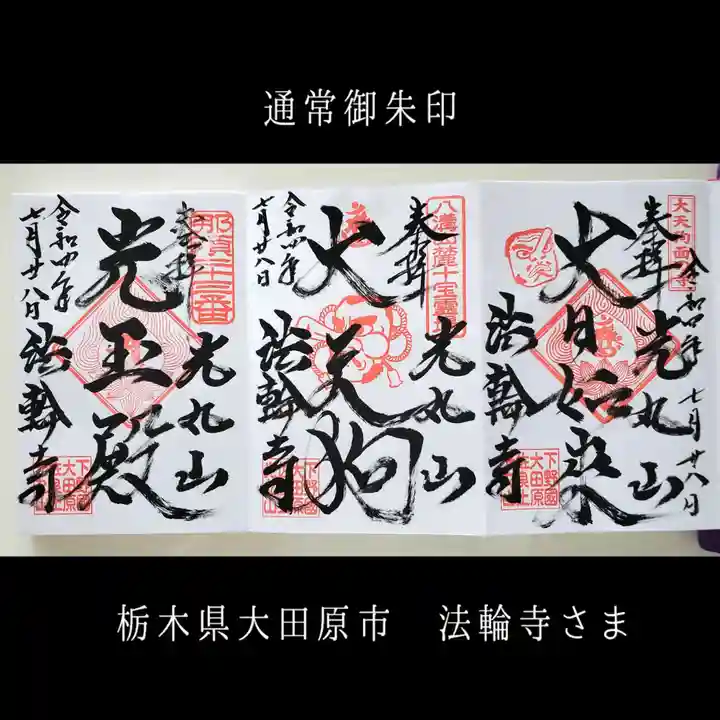 通常御朱印
大天狗面の寺
奉拝
令和四年
七月廿八日
光丸山
大日如来
法輪寺
下野國
大田原
八溝山麓十宝霊場
奉拝
光丸山
大天狗
令和四年
七月廿八日
法輪寺
下野國
大田原
奉拝
光丸山
光玉殿
令和四年
七月廿八日
法輪寺
下野國
大田原
佐良土
栃木県大田原市　法輪寺さま